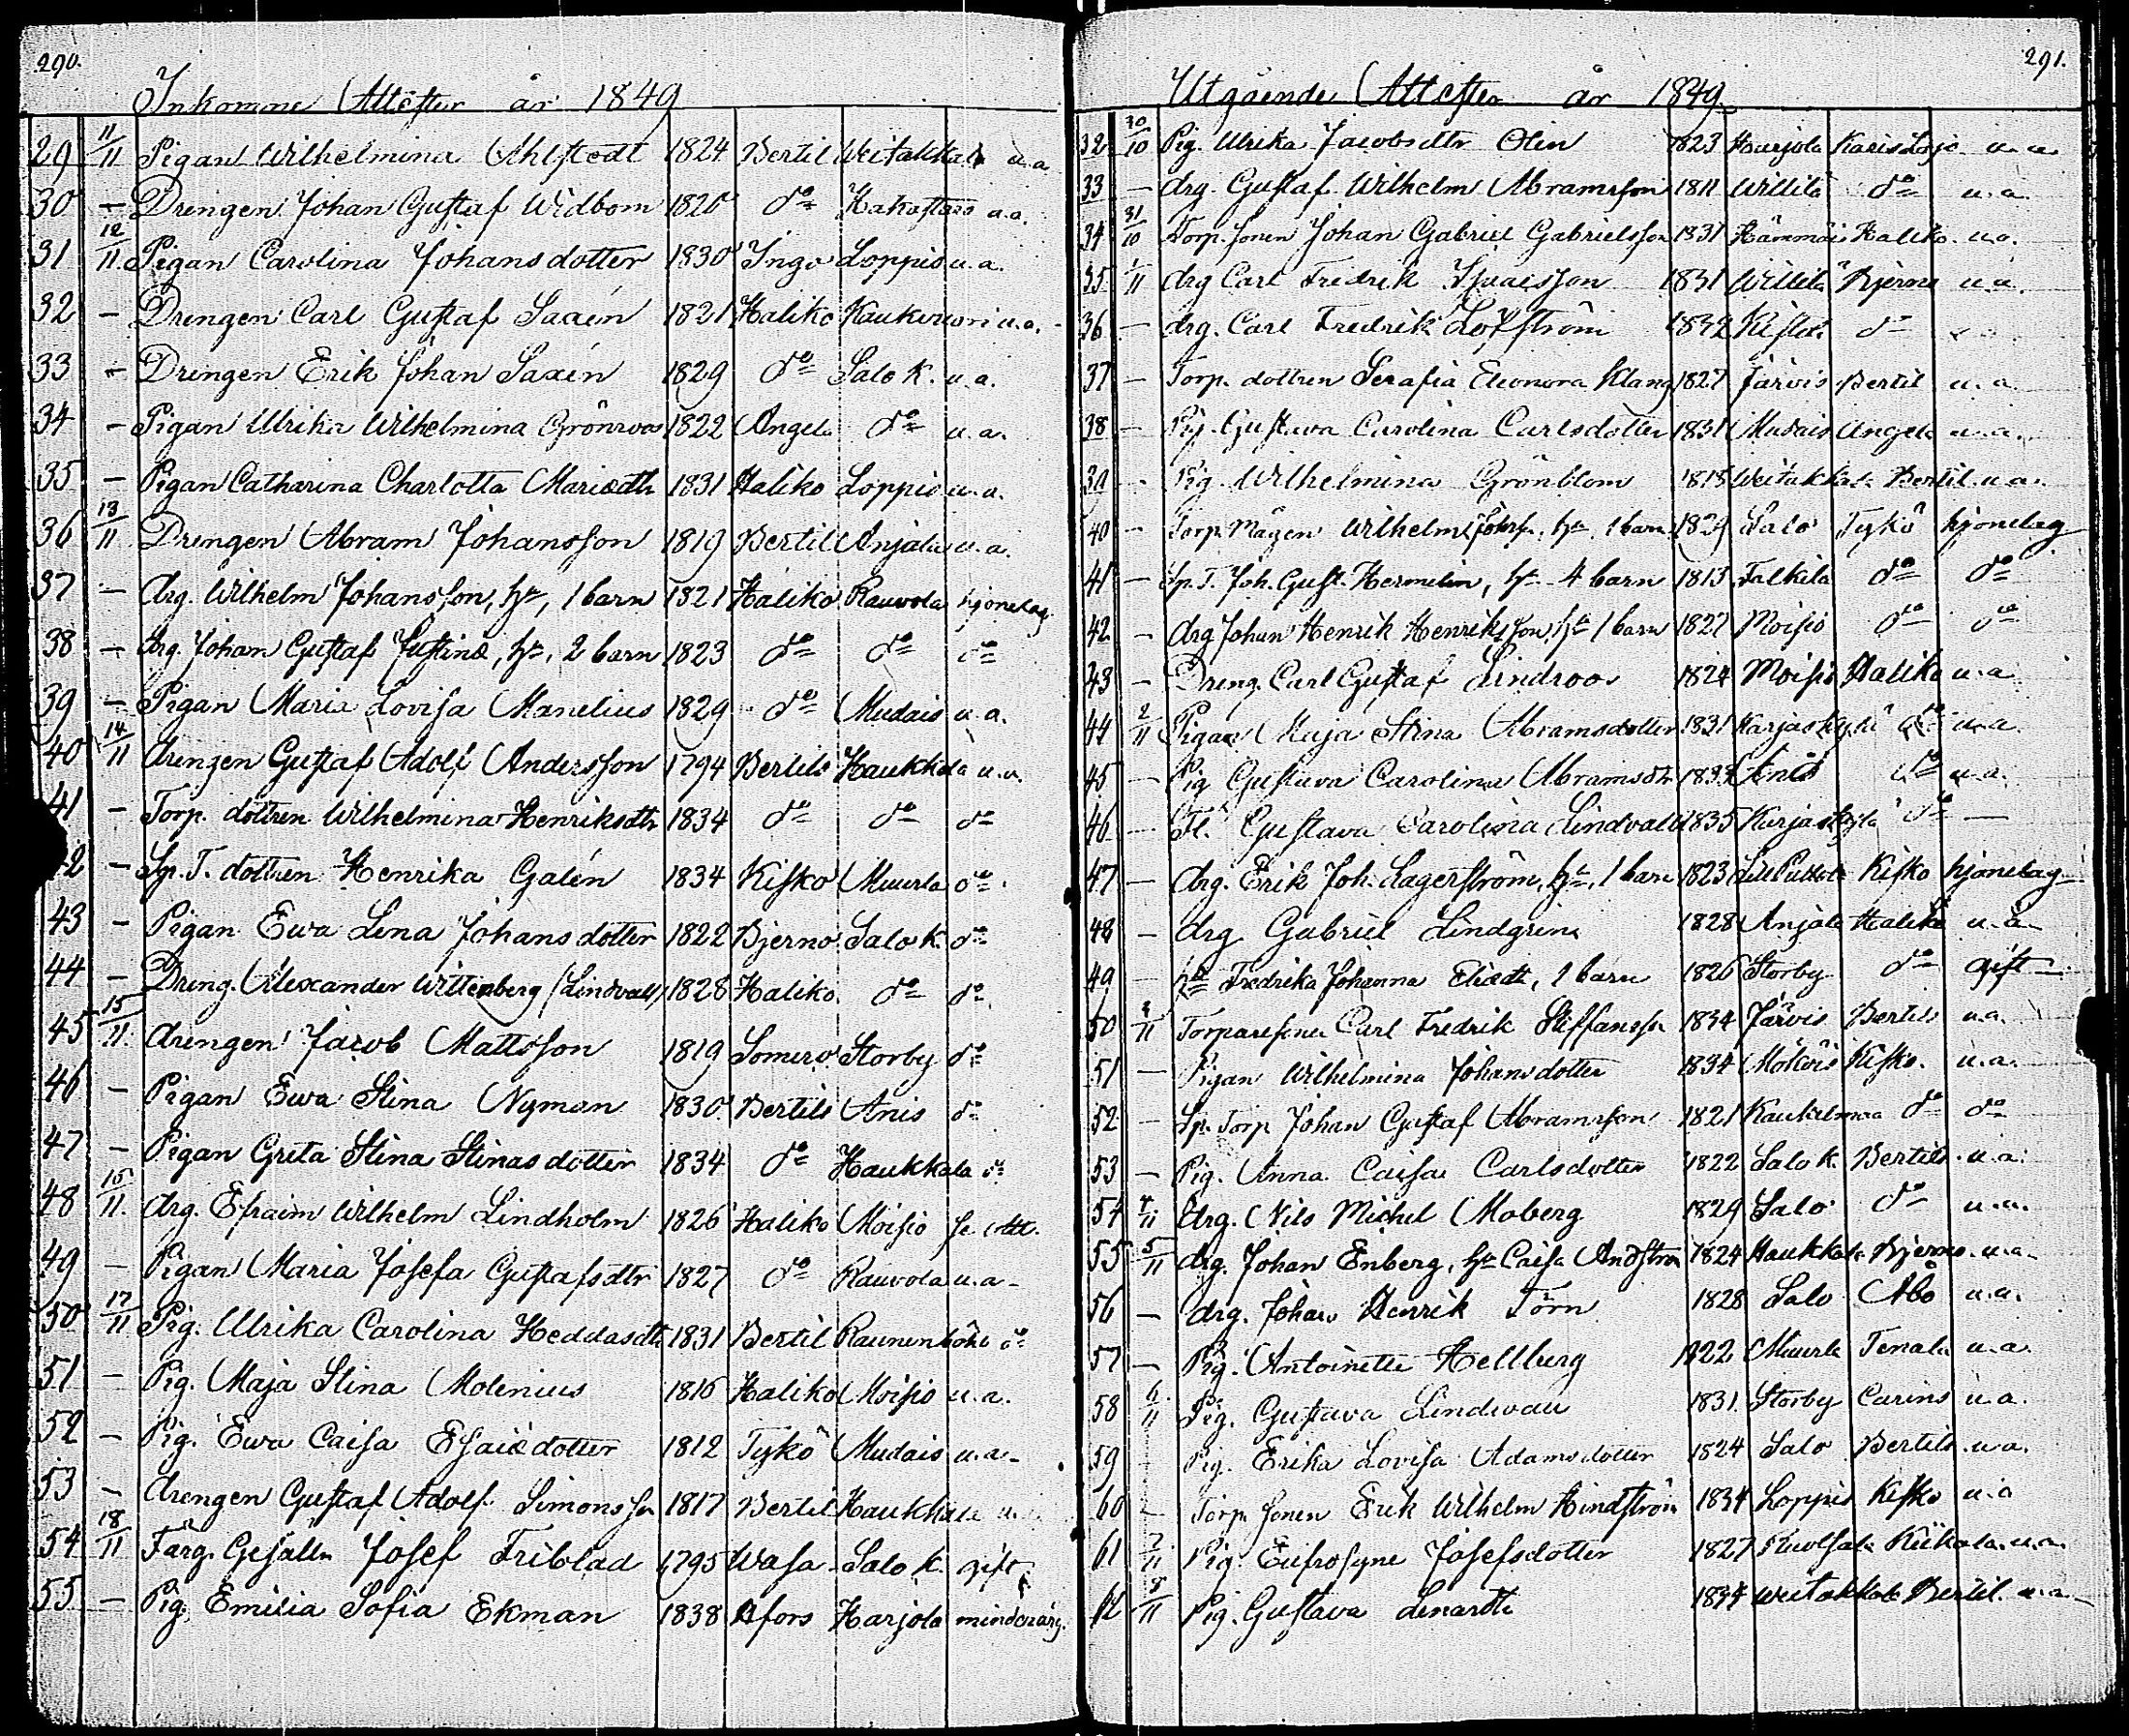 290.
Inkomne Attester år 1849
29 11/11 Pigan Wilhelmina Ahlstedt 1824 Bertil Weitakkala u.a.
30 — Drengen Johan Gustaf Widbom 1820 do u.a.
31 12/11 Pigan Carolina Johansdotter 1830 Ingo Loppis u.a.
32 — Drengen Carl Gustaf Saxén 1821 Haliko u.a.
33 — Drengen Erik Johan Saxén 1829 do Salo K. u.a.
34 — Pigan Ulrika Wilhelmina Grönroos 1822 Angela do u.a.
35 — Pigan Catharina Charlotta Mariædtr 1831 Haliko Loppis u.a.
36 13/11 Drengen Abram Johansson 1819 Bertil Anjala u.a.
37 — drg. Wilhelm Johansson, hu, 1 barn 1821 Haliko Rauvola hjonelag
38 — drg. Johan Gustaf Justinæ, hu, 2 barn 1823 do do do
39 — Pigan Maria Lovisa Manelius 1829 do Mudais u.a.
40 14/11 drengen Gustaf Adolf Andersson 1794 Bertils Haukkala u.a.
41 — Torp. dottren Wilhelmina Henriksdtr 1834 do do do
42 — Sp. T. dottren Henrika Galén 1834 Kisko Muurla do
43 — Pigan Ewa Lena Johansdotter 1822 Bjerno Salo K. do
44 — Dreng. Alexander Wittenberg (Lindvall) 1828 Haliko do do
45 15/11 drengen Jacob Mattsson 1819 Somero Storby do
46 — Pigan Ewa Stina Nyman 1830 Bertils Anis do
47 — Pigan Greta Stina Stinasdotter 1834 do Haukkala do
48 15/11 drg. Efraim Wilhelm Lindholm 1826 Haliko Moisio se att.
49 — Pigan Maria Josefa Gustafsdtr 1827 do Rauvola u.a.
50 17/11 Pig. Ulrika Carolina Heddasdtr 1831 Bertil do
51 — Pig. Maja Stina Molenius 1816 Haliko Moisio u.a.
52 — Pig. Ewa Caisa Esaiædotter 1812 Tykö Mudais u.a.
53 — drengen Gustaf Adolf Simonsson 1817 Bertil Haukkala u.
54 18/11 Färg. Gesälln Josef Friblad 1795 Wasa Salo K. gift
55 — Pig. Emilia Sofia Ekman 1838 Hfors Harjola minderårig.
291.
Utgående Attester år 1849
32 30/10 Pig. Ulrika Jacobsdtr Olin 1823 Harjola Karislojo u.a.
33 — drg. Gustaf Wilhelm Abramsson 1811 Willilä do u.a.
34 31/10 Torp. sonen Johan Gabriel Gabrielsson 1831 Haliko u.a.
35 1/11 drg Carl Fredrik 1831 Willilä Bjerno u.a.
36 — drg. Carl Fredrik Löfström 1832 do
37 — Torp. dottren Serafia Eleonora Klang 1827 Järvis Bertil u.a.
38 — Pig. Gustava Carolina Carlsdotter 1831 Mudais Angela u.a.
39 - Pig. Wilhelmina Grönblom 1815 Weitakkala Bertil u.a.
40 — Torp. Mågen Wilhelm hu, 1 barn 1829 Salo Tykö hjonelag
41 — Sp. T. Joh. Gust. Hermelin, hu 4 barn 1813 do do
42 — drg Johan Henrik Henriksson, hu 1 barn 1827 Moisio do do
43 — Dreng. Carl Gustaf Lindroos 1824 Moisio Haliko u.a.
44 2/11 Pigan Maja Stina Abramsdotter 1831 Karjaskylä do u.a.
45 — Pig Gustava Carolina Abramsdtr 1833 Anis do u.a.
46 — Fl. Gustava Carolina Lindvall 1835 Karjaskylä do —
47 — drg. Erik Joh. Lagerström, hu, 1 barn 1823 Kisko hjonelag
48 — drg Gabriel Lindgren 1828 Anjala Haliko u.a.
49 — hu Fredrika Johanna Eliædtr, 1 barn 1826 Storby do gift
50 /11 Torparesonen Carl Fredrik Stiffansson 1834 Järvis Bertils u.a.
51 — Pigan Wilhelmina Johansdotter 1834 Kisko. u.a.
52 — Sp. Torp Johan Gustaf Abramsson 1821 do do
53 — Pig. Anna Caisa Carlsdotter 1822 Salo K. Bertils u.a.
54 4/11 drg. Nils Michel Moberg 1829 Salo do u.a.
55 5/11 drg. Johan Enberg, hu Caisa Andström 1824 Haukkala Bjerno u.a.
56 — drg. Johan Henrik Törn 1828 Salo Åbo u.a.
57 — Pig. Antoinette Hellberg 1822 Muurla Tenala u.a.
58 6/11 Pig. Gustava Lindwall 1831 Storby u.a.
59 - Pig. Erika Lovisa Adamsdotter 1824 Salo Bertils u.a.
60 — Torp. sonen Erik Wilhelm Hindström 1834 Loppis Kisko u.a
61 7/11 Pig. Eufrosyne Josefsdotter 1827 Kiikala u.a.
62 8/11 Pig. Gustava Lenardtr 1834 Weitakkala Bertil u.a.